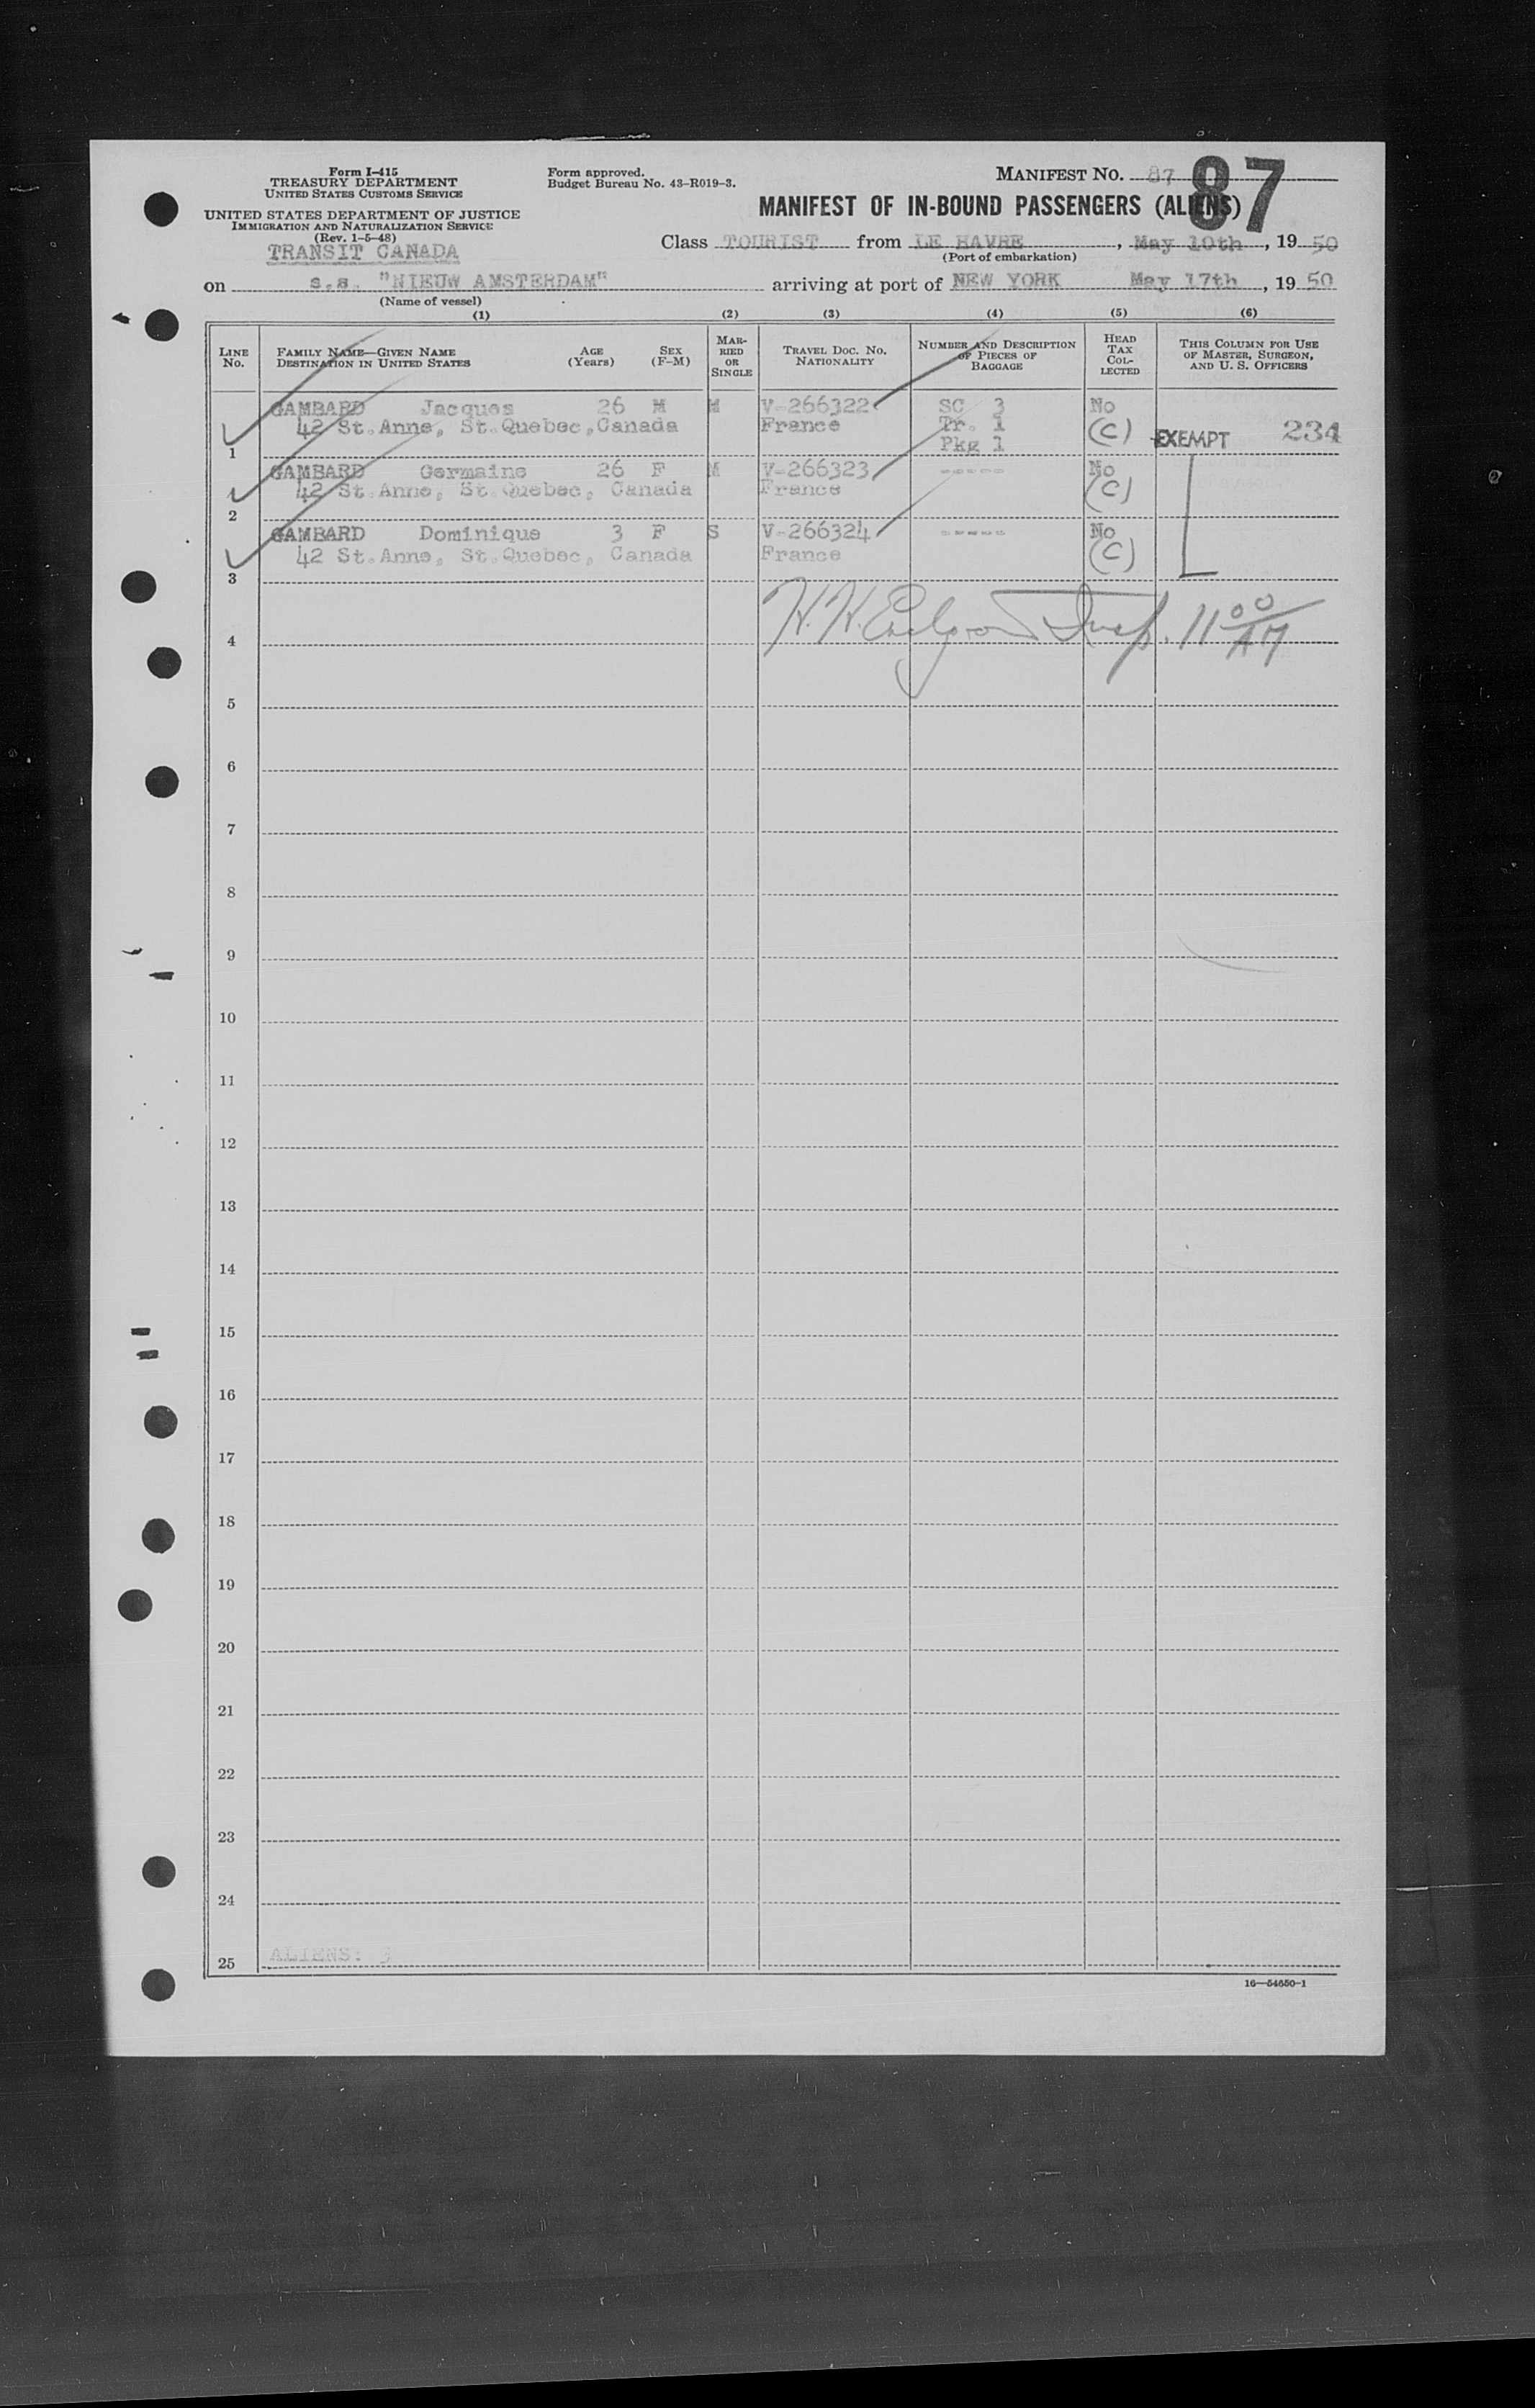 Form I-415
TREASURY DEPARTMENT
UNITED STATES CUSTOMS SERVICE
UNITED STATES DEPARTMENT OF JUSTICE
IMMIGRATION AND NATURALIZATION SERVICE
(Rev. 1-5-48)
TRANSIT CANADA
Form approved.
Budget Bureau No. 43-R019-3.
MANIFEST NO. 87
87
MANIFEST OF IN-BOUND PASSENGERS (ALIENS)
Class TOURIST from LE HAVRE, May 10th, 19 50
(Port of embarkation)
on s.s. "NIEUW AMSTERDAM" arriving at port of NEW YORK May 17th, 19 50
(Name of vessel)
(1) (2) (3) (4) (5) (6)
LINE No.
FAMILY NAME—GIVEN NAME
DESTINATION IN UNITED STATES
AGE (Years)
SEX (F-M)
MARRIED OR SINGLE
TRAVEL DOC. NO. NATIONALITY
NUMBER AND DESCRIPTION OF PIECES OF BAGGAGE
HEAD TAX COLLECTED
THIS COLUMN FOR USE OF MASTER, SURGEON, AND U. S. OFFICERS
GAMBARD Jacques 26 M M V-266322 SC 3 No
42 St.Anne, St.Quebec,Canada France Tr. 1 (C) EXEMPT 234
1 Pkg 1
GAMBARD Germaine 26 F M V-266323 ----- No
42 St.Anne, St.Quebec, Canada France (C)
2
GAMBARD Dominique 3 F S V-266324 ----- No
42 St.Anne, St.Quebec, Canada France (C)
3
H.H. Insp. 11 00 AM
4
5
6
7
8
9
10
11
12
13
14
15
16
17
18
19
20
21
22
23
24
25 ALIENS: 3
16—54650-1